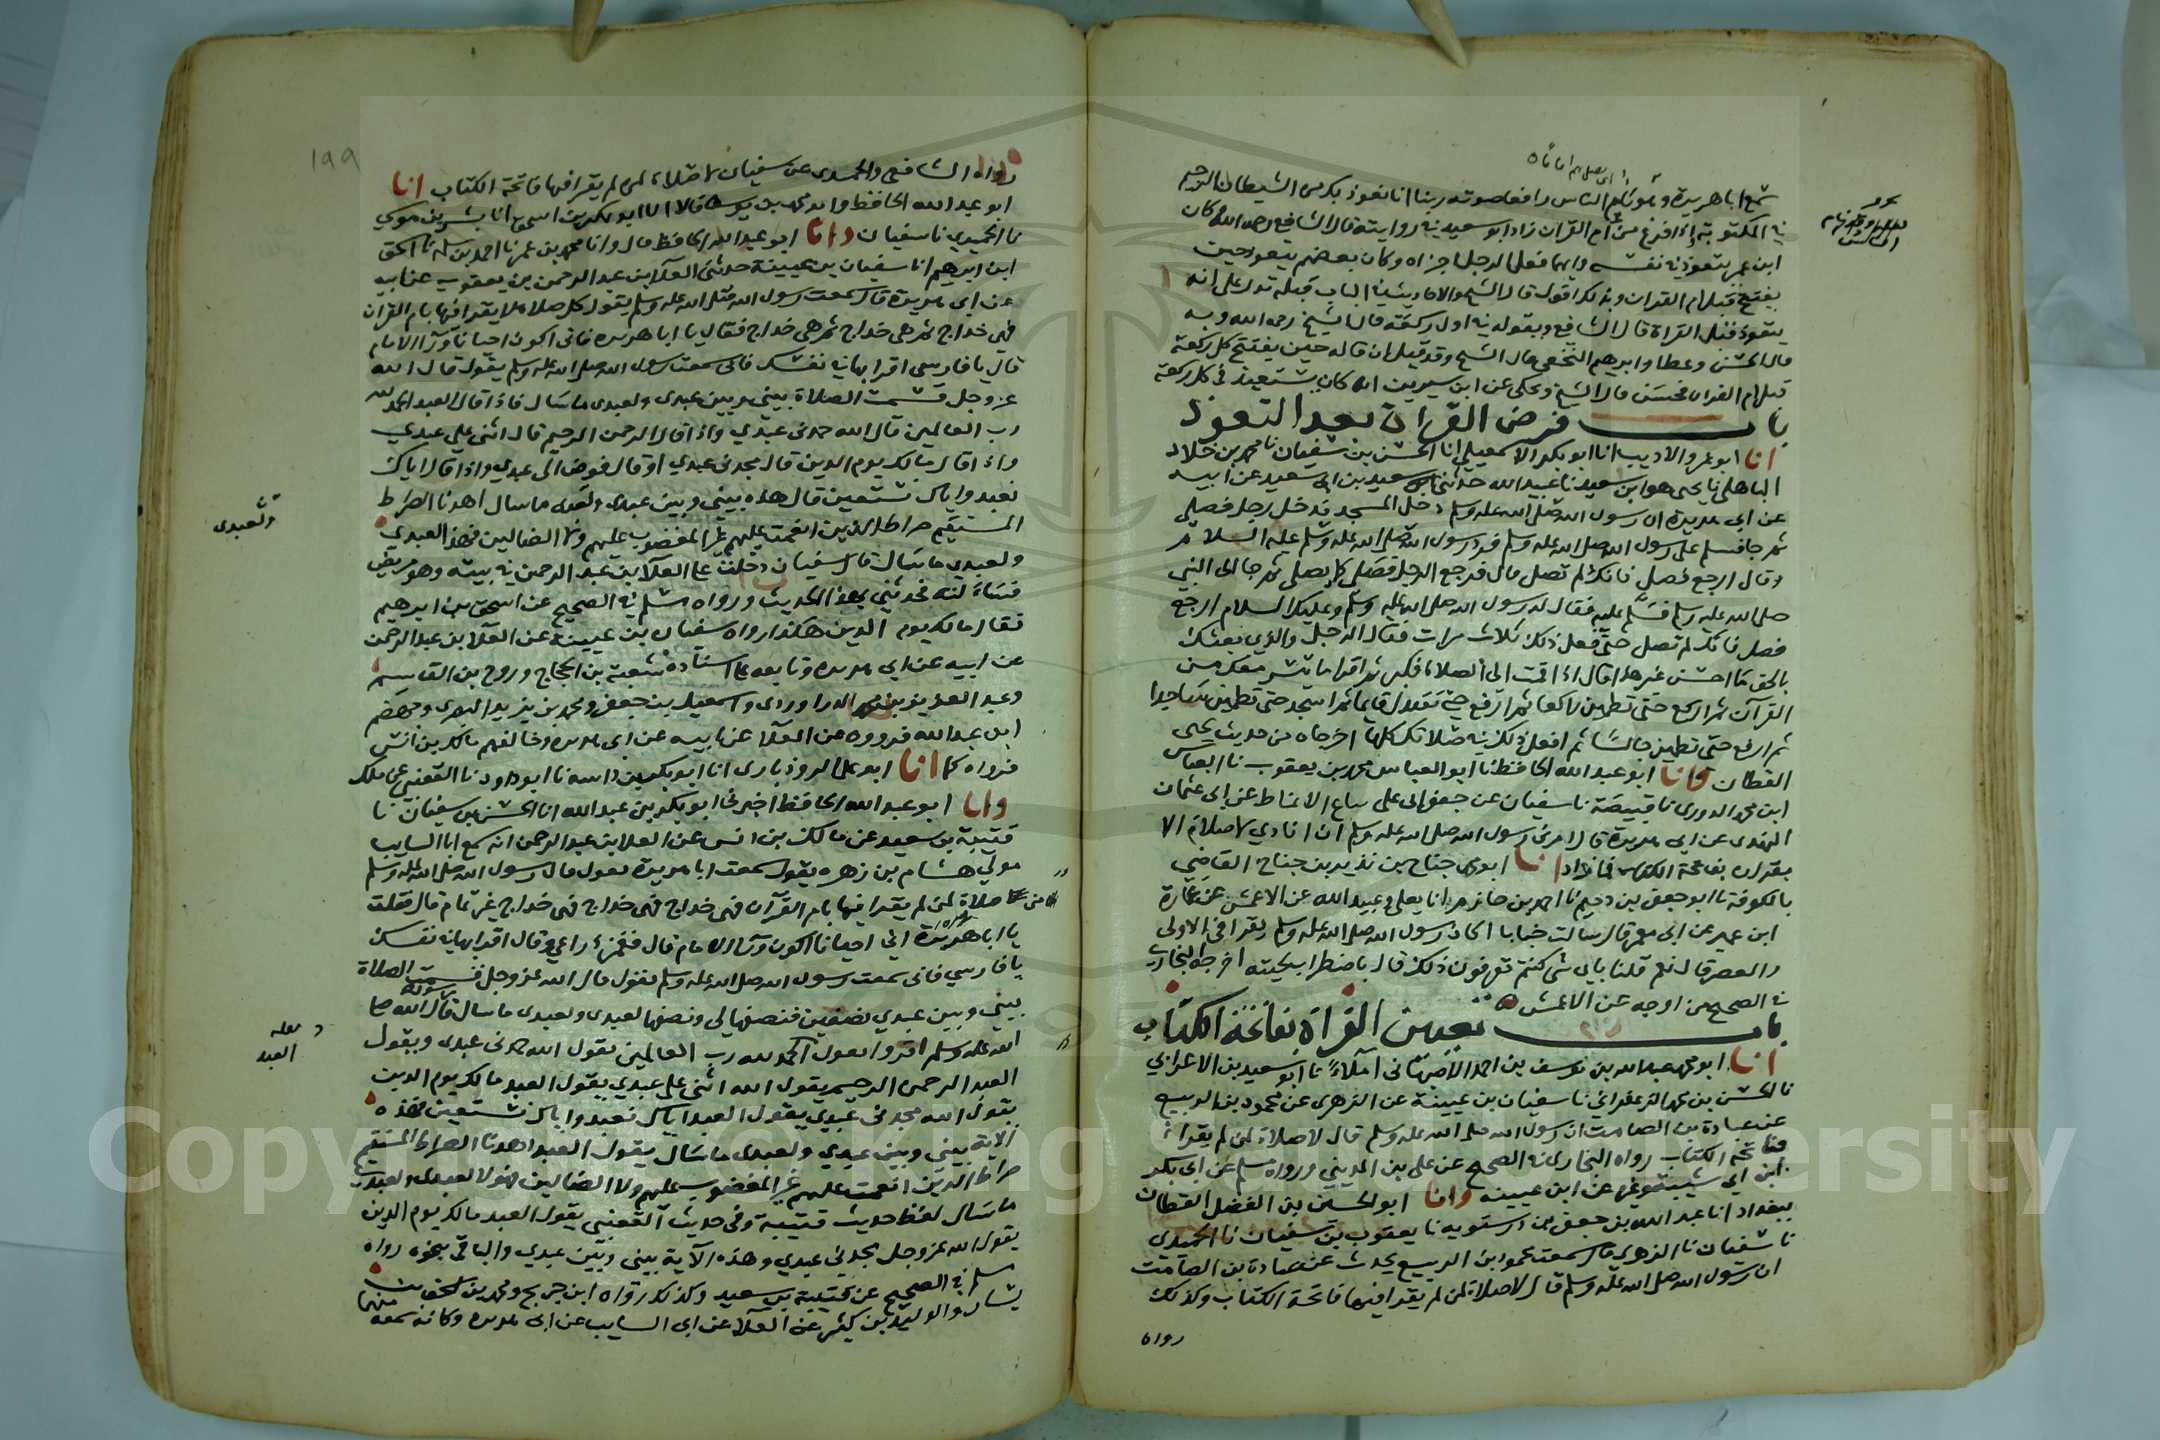 سمع ابا هريرة وهو يؤم الناس رافعا صوته ربنا انا نعوذ بك من الشيطان الرجيم
في المكتوبة اذا فرغ من ام القران زاد ابو سعيد في روايته قال الشافعي رحمه الله وكان
ابن عمر يتعوذ في نفسه وايهما فعل الرجل اجزاه وكان بعضهم يتعوذ حين
يفتتح قبل ام القران وبذلك اقول قال الشيخ والاحاديث في الباب قبله تدل على انه
يتعوذ قبل القراة قال الشافعي ويقوله في اول ركعة قال الشيخ رحمه الله وبه
قال الحسن وعطا وابرهيم النخعي قال الشيخ وقد قيل ان قاله حين يفتتح كل ركعة
قبل ام القران فحسن قال الشيخ ويحكى عن ابن سيرين انه كان يستعيذ في كل ركعة
باب فرض القراة بعد التعوذ
انا ابو عمرو الاديب انا ابو بكر الاسمعيلي انا الحسن بن سفيان نا محمد بن خلاد
الباهلي نا يحيى هو ابن سعيد نا عبيد الله حدثني سعيد بن ابي سعيد عن ابيه
عن ابي هريرة ان رسول الله صلى الله عليه وسلم دخل المسجد فدخل رجل فصلى
ثم جا فسلم على رسول الله صلى الله عليه وسلم فرد رسول الله صلى الله عليه وسلم عليه السلام
وقال ارجع فصل فانك لم تصل قال فرجع الرجل فصلى كما يصلي ثم جا الى النبي
صلى الله عليه وسلم فسلم عليه فقال له رسول الله صلى الله عليه وسلم وعليك السلام ارجع
فصل فانك لم تصل حتى فعل ذلك ثلاث مرات فقال الرجل والذي بعثك
بالحق ما احسن غير هذا قال اذا قمت الى الصلاة فكبر ثم اقرا ما تيسر معك من
القرآن ثم اركع حتى تطمين راكعا ثم ارفع حتى تعتدل قايما ثم اسجد حتى تطمين ساجدا
ثم ارفع حتى تطمين جالسا ثم افعل ذلك في صلاتك كلها اخرجاه من حديث يحيى
القطان وانا ابو عبد الله الحافظ نا ابو العباس محمد بن يعقوب نا العباس
ابن محمد الدوري نا قبيصة نا سفيان عن جعفر ابي علي بياع الانماط عن ابي عثمان
النهدي عن ابي هريرة قال امرني رسول الله صلى الله عليه وسلم ان انادي لا صلاة الا
بقران بفاتحة الكتاب فما زاد انا ابو محمد جناح بن نذير بن جناح القاضي
بالكوفة نا ابو جعفر بن دحيم نا احمد بن حازم انا يعلى وعبيد الله عن الاعمش عن عمارة
ابن عمير عن ابي معمر قال سالت خبابا اكان رسول الله صلى الله عليه وسلم يقرا في الاولى
والعصر قال نعم قلنا باي شي كنتم تعرفون ذلك قال باضطراب لحيته اخرجه البخاري
في الصحيح من اوجه عن الاعمش
باب تعيين القراة بفاتحة الكتاب
انا ابو محمد عبد الله بن يوسف بن احمد الاصبهاني املاء نا ابو سعيد بن الاعرابي
نا الحسن بن محمد الزعفراني نا سفيان بن عيينة عن الزهري عن محمود بن الربيع
عن عبادة بن الصامت ان رسول الله صلى الله عليه وسلم قال لا صلاة لمن لم يقرا
فاتحة الكتاب رواه البخاري في الصحيح عن علي بن المديني ورواه مسلم عن ابي بكر
ابن ابي شيبة وغيره عن ابن عيينة وانا ابو الحسين بن الفضل القطان
ببغداد انا عبد الله بن جعفر بن درستويه نا يعقوب بن سفيان نا الحميدي
نا سفيان نا الزهري قال سمعت محمود ابن الربيع يحدث عن عبادة بن الصامت
ان رسول الله صلى الله عليه وسلم قال لا صلاة لمن لم يقرا فيها فاتحة الكتاب وكذلك
رواه
١٩٩
رواه الشافعي والحميدي عن سفيان لا صلاة لمن لم يقرا فيها فاتحة الكتاب انا
ابو عبد الله الحافظ وابو محمد بن يوسف قالا انا ابو بكر بن اسحق انا بشر بن موسى
نا الحميدي نا سفيان وانا ابو عبد الله الحافظ قال وانا محمد بن عمر نا احمد بن سلمة نا اسحق
ابن ابرهيم انا سفيان بن عيينة حدثني العلا بن عبد الرحمن بن يعقوب عن ابيه
عن ابي هريرة قال سمعت رسول الله صلى الله عليه وسلم يقول كل صلاة لا يقرا فيها بام القران
فهي خداج ثم هي خداج ثم هي خداج فقال يا ابا هريره فاني اكون احيانا ورآ الامام
قال يا فارسي اقرا بها في نفسك فاني سمعت رسول الله صلى الله عليه وسلم يقول قال الله
عز وجل قسمت الصلاة بيني وبين عبدي ولعبدي ما سال فاذا قال العبد الحمد لله
رب العالمين قال الله حمدني عبدي واذا قال الرحمن الرحيم قال اثنى علي عبدي
واذا قال مالك يوم الدين قال مجدني عبدي او قال فوض الى عبدي واذا قال اياك
نعبد واياك نستعين قال هذه بيني وبين عبدي ولعبدي ما سال اهدنا الصراط
المستقيم صراط الذين انعمت عليهم غير المغضوب عليهم ولا الضالين فهذا لعبدي
ولعبدي ما سال قال سفيان دخلت على العلا بن عبد الرحمن في بيته وهو مريض
فسالته فحدثني بهذا الحديث ورواه مسلم في الصحيح عن اسحق بن ابرهيم
فقال مالك يوم الدين هكذا رواه سفيان بن عيينة عن العلا بن عبد الرحمن
عن ابيه عن ابي هريره وتابعه على اسناده شعبة بن الحجاج وروح بن القاسم
وعبد العزيز بن محمد الدراوردي واسمعيل بن جعفر ومحمد بن يزيد البصري وجهضم
ابن عبد الله فرووه عن العلا عن ابيه عن ابي هريره وخالفهم مالك بن انس
فرواه كما انا ابو علي الروذباري انا ابو بكر بن داسه نا ابو داود نا القعنبي عن مالك
وانا ابو عبد الله الحافظ اخبرني ابو بكر بن عبد الله انا الحسن بن سفيان نا
قتيبة بن سعيد عن مالك بن انس عن العلا بن عبد الرحمن انه سمع ابا السايب
مولى هشام بن زهره يقول سمعت ابا هريرة يقول قال رسول الله صلى الله عليه وسلم
من صلى صلاة لم يقرا فيها بام القرآن فهي خداج فهي خداج فهي خداج غير تمام قال فقلت
يا ابا هريرة اني احيانا اكون ورآ الامام قال فغمز ذراعي وقال اقرا بها في نفسك
يا فارسي فاني سمعت رسول الله صلى الله عليه وسلم يقول قال الله عز وجل قسمت الصلاة
بيني وبين عبدي نصفين فنصفها لي ونصفها لعبدي ولعبدي ما سال قال رسول الله صلى
الله عليه وسلم اقروا يقول الحمد لله رب العالمين يقول الله حمدني عبدي ويقول
العبد الرحمن الرحيم يقول الله اثنى علي عبدي يقول العبد مالك يوم الدين
يقول الله مجدني عبدي يقول العبد اياك نعبد واياك نستعين فهذه
الاية بيني وبين عبدي ولعبدي ما سال يقول العبد اهدنا الصراط المستقيم
صراط الذين انعمت عليهم غير المغضوب عليهم ولا الضالين فهولا لعبدي ولعبدي
ما سال لفظ حديث قتيبة وفي حديث القعنبي يقول العبد مالك يوم الدين
يقول الله عز وجل مجدني عبدي وهذه الآية بيني وبين عبدي والباقي بنحوه رواه
مسلم في الصحيح عن قتيبة بن سعيد وكذلك رواه ابن جريج ومحمد بن اسحق بن
يسار والوليد بن كثير عن العلا عن ابي السايب عن ابي هريره وكانه سمعه منهما
ولعبدي
العبد
Copyright © King Saud University